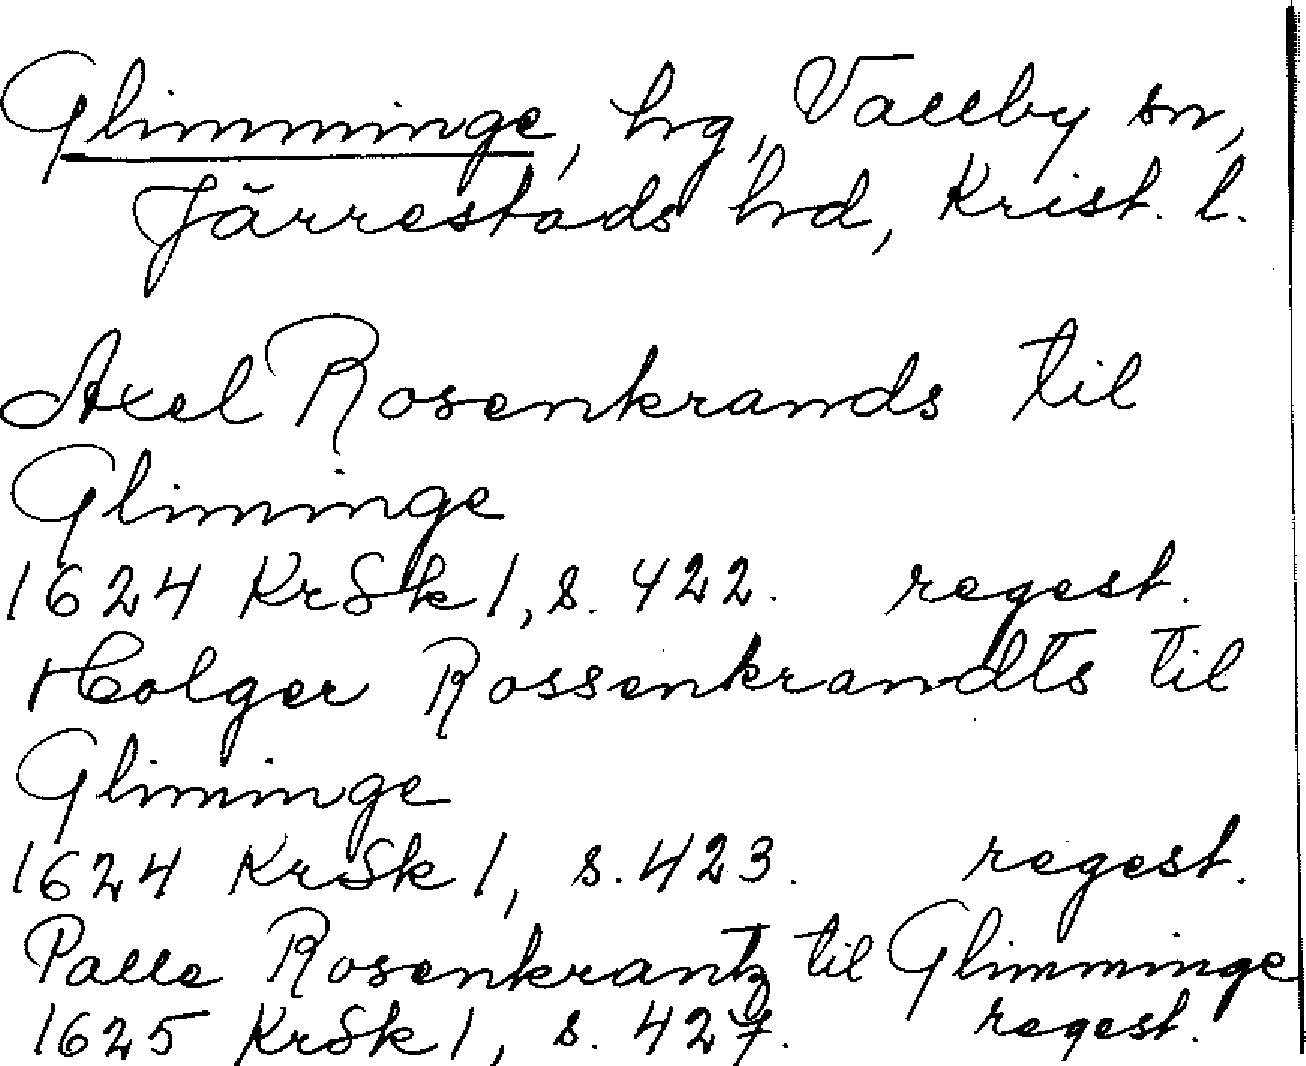 Glimminge, hg, Vallby sn,
Järrestads hd, Krist. l.
Axel Rosenkrands til
Gliminge
1624 KrSk 1, s. 422. regest.
Holger Rossenkrandts til
Gliminge
1624 KrSk 1, s. 423. regest.
Palle Rosenkrantz til Glimminge
1625 KrSk 1, s. 427. regest.